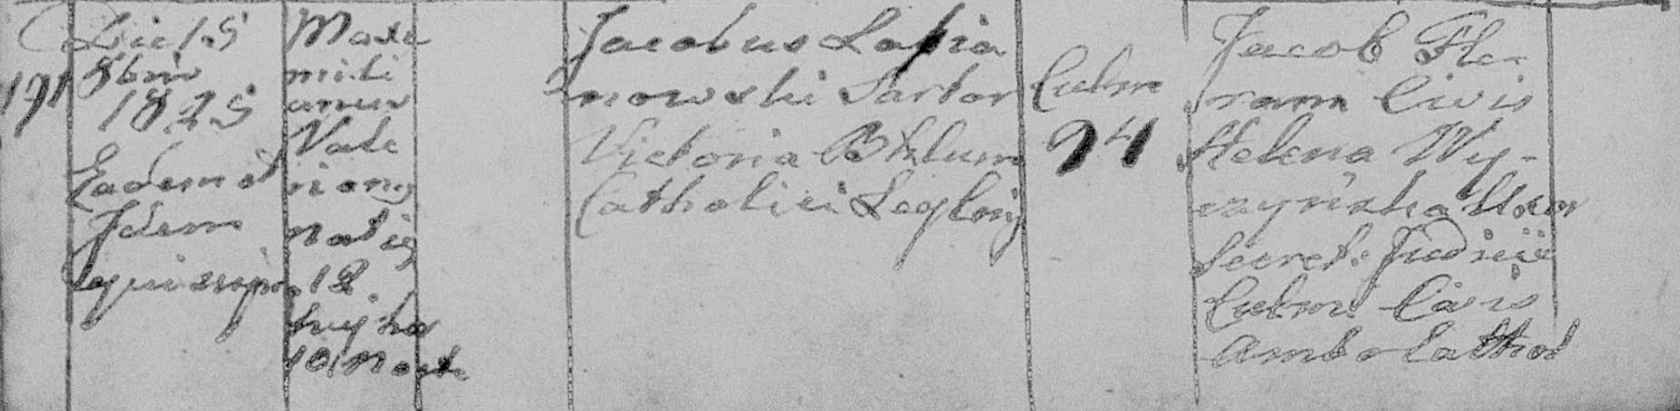 191
Die 15
8bris
1825
Eadem et
Idem
qui supra
Maxi
mili
anus
Vale
rianus
natus
12
hujus
10 Nocte
Jacobus Lapia
nowski Sartor
Victoria Blum
Catholici Legitimi
Culm
94
Jacob
ram Civis
Helena Wy-
czyńska Uxor
Secret: Judicii
Culm: Civis
Ambo Cathol